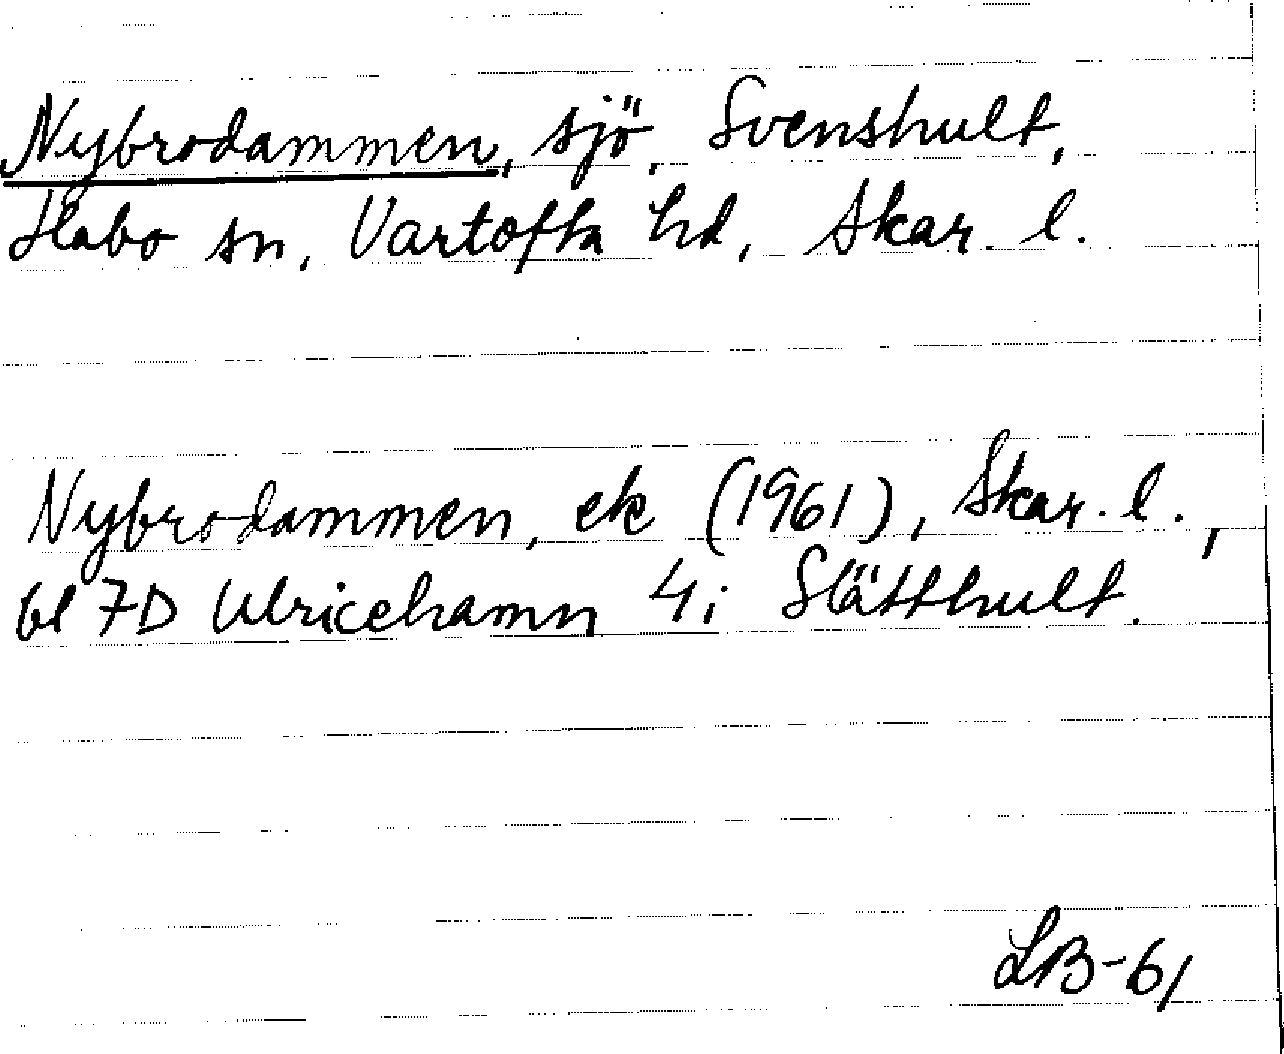 Nybrodammen, sjö, Svenshult,
Habo sn, Vartofta hd, Skar. l.
Nybrodammen, ek (1961), Skar. l.,
bl 7D Ulricehamn 4i Slätthult.
LB-61